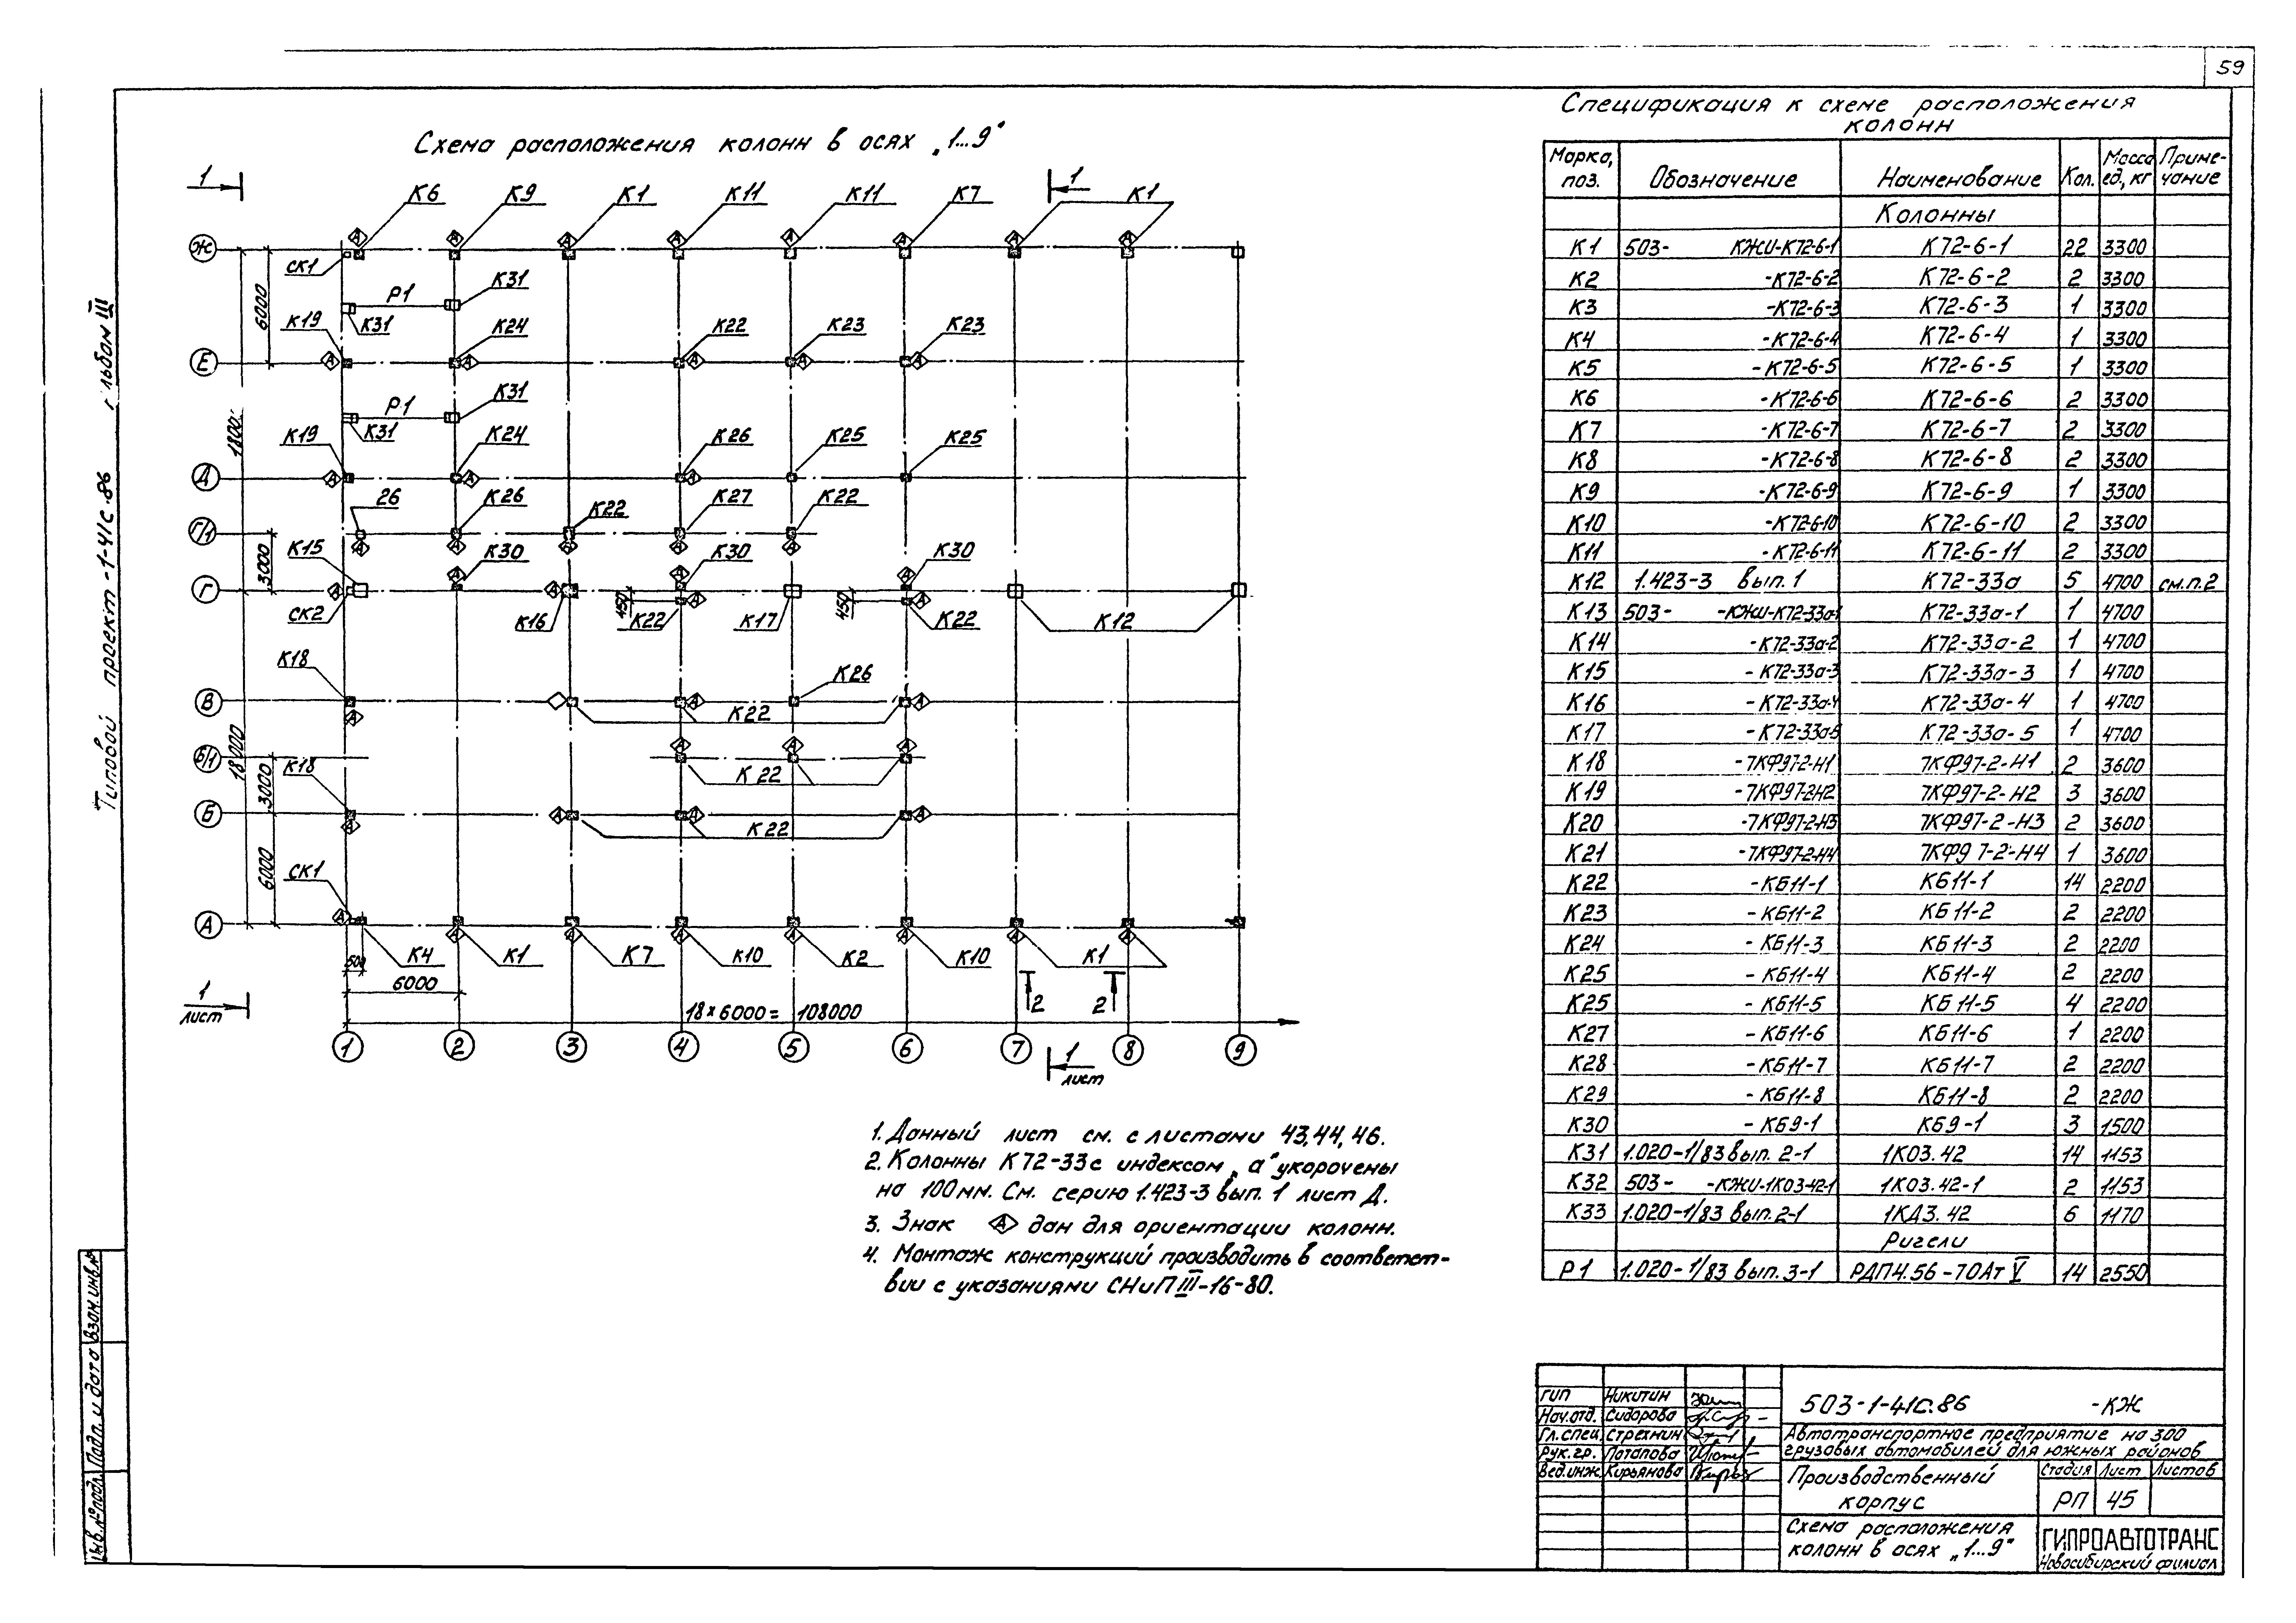 59
Схема расположения колонн в осях „1...9"
1 1
К6 К9 К1 К11 К11 К7 К1
Ж
СК1
Р1 К31
6000
К19 К31 К24 К22 К23 К23
Е
Р1 К31
1800
К19 К31 К24 К26 К25 К25
Д
26 К26 К22 К27 К22
Г/1
3000
К15 К30 К30 К30
Г
СК2 К16 450 К22 К17 450 К22 К12
К18 К26
В
К22
18000
Б/1
К18 3000 К22
Б
К22
6000
СК1
А
К4 К1 К7 К10 К2 К10 К1
500
6000
1
лист
18×6000= 108000
2 2
1 2 3 4 5 6 7 8 9
1
лист
1. Данный лист см. с листами 43,44,46.
2. Колонны К72-33 с индексом „а" укорочены
на 100мм. См. серию 1.423-3 вып. 1 лист Д.
3. Знак А дан для ориентации колонн.
4. Монтаж конструкций производить в соответст-
вии с указаниями СНиП III-16-80.
Спецификация к схеме расположения
колонн
Марка, поз. Обозначение Наименование Кол. Масса ед, кг Приме-чание
Колонны
К1 503- КЖИ-К72-6-1 К72-6-1 22 3300
К2 -К72-6-2 К72-6-2 2 3300
К3 -К72-6-3 К72-6-3 1 3300
К4 -К72-6-4 К72-6-4 1 3300
К5 -К72-6-5 К72-6-5 1 3300
К6 -К72-6-6 К72-6-6 2 3300
К7 -К72-6-7 К72-6-7 2 3300
К8 -К72-6-8 К72-6-8 2 3300
К9 -К72-6-9 К72-6-9 1 3300
К10 -К72-6-10 К72-6-10 2 3300
К11 -К72-6-11 К72-6-11 2 3300
К12 1.423-3 вып. 1 К72-33а 5 4700 см.п.2
К13 503- -КЖИ-К72-33а-1 К72-33а-1 1 4700
К14 -К72-33а-2 К72-33а-2 1 4700
К15 -К72-33а-3 К72-33а-3 1 4700
К16 -К72-33а-4 К72-33а-4 1 4700
К17 -К72-33а-5 К72-33а-5 1 4700
К18 -7КФ97-2-Н1 7КФ97-2-Н1 2 3600
К19 -7КФ97-2-Н2 7КФ97-2-Н2 3 3600
К20 -7КФ97-2-Н3 7КФ97-2-Н3 2 3600
К21 -7КФ97-2-Н4 7КФ97-2-Н4 1 3600
К22 -КБ11-1 КБ11-1 14 2200
К23 -КБ11-2 КБ11-2 2 2200
К24 -КБ11-3 КБ11-3 2 2200
К25 -КБ11-4 КБ11-4 2 2200
К25 -КБ11-5 КБ11-5 4 2200
К27 -КБ11-6 КБ11-6 1 2200
К28 -КБ11-7 КБ11-7 2 2200
К29 -КБ11-8 КБ11-8 2 2200
К30 -КБ9-1 КБ9-1 3 1500
К31 1.020-1/83 вып. 2-1 1К03.42 14 1153
К32 503- -КЖИ-1К03-42-1 1К03.42-1 2 1153
К33 1.020-1/83 вып.2-1 1КД3.42 6 1170
Ригели
Р1 1.020-1/83 вып.3-1 РДП4.56-70Ат V 14 2550
ГИП Никитин
Нач.отд. Сидорова
Гл.спец. Стрехнин
Рук.гр. Потапова
Вед.инж. Кирьянова
503-1-41С.86 -КЖ
Автотранспортное предприятие на 300
грузовых автомобилей для южных районов
Производственный
корпус
Стадия Лист Листов
РП 45
Схема расположения
колонн в осях „1...9"
ГИПРОАВТОТРАНС
Новосибирский филиал
Типовой проект -1-41с.86 льбом III
Инв.№подл. Подп. и дата Взам.инв.№